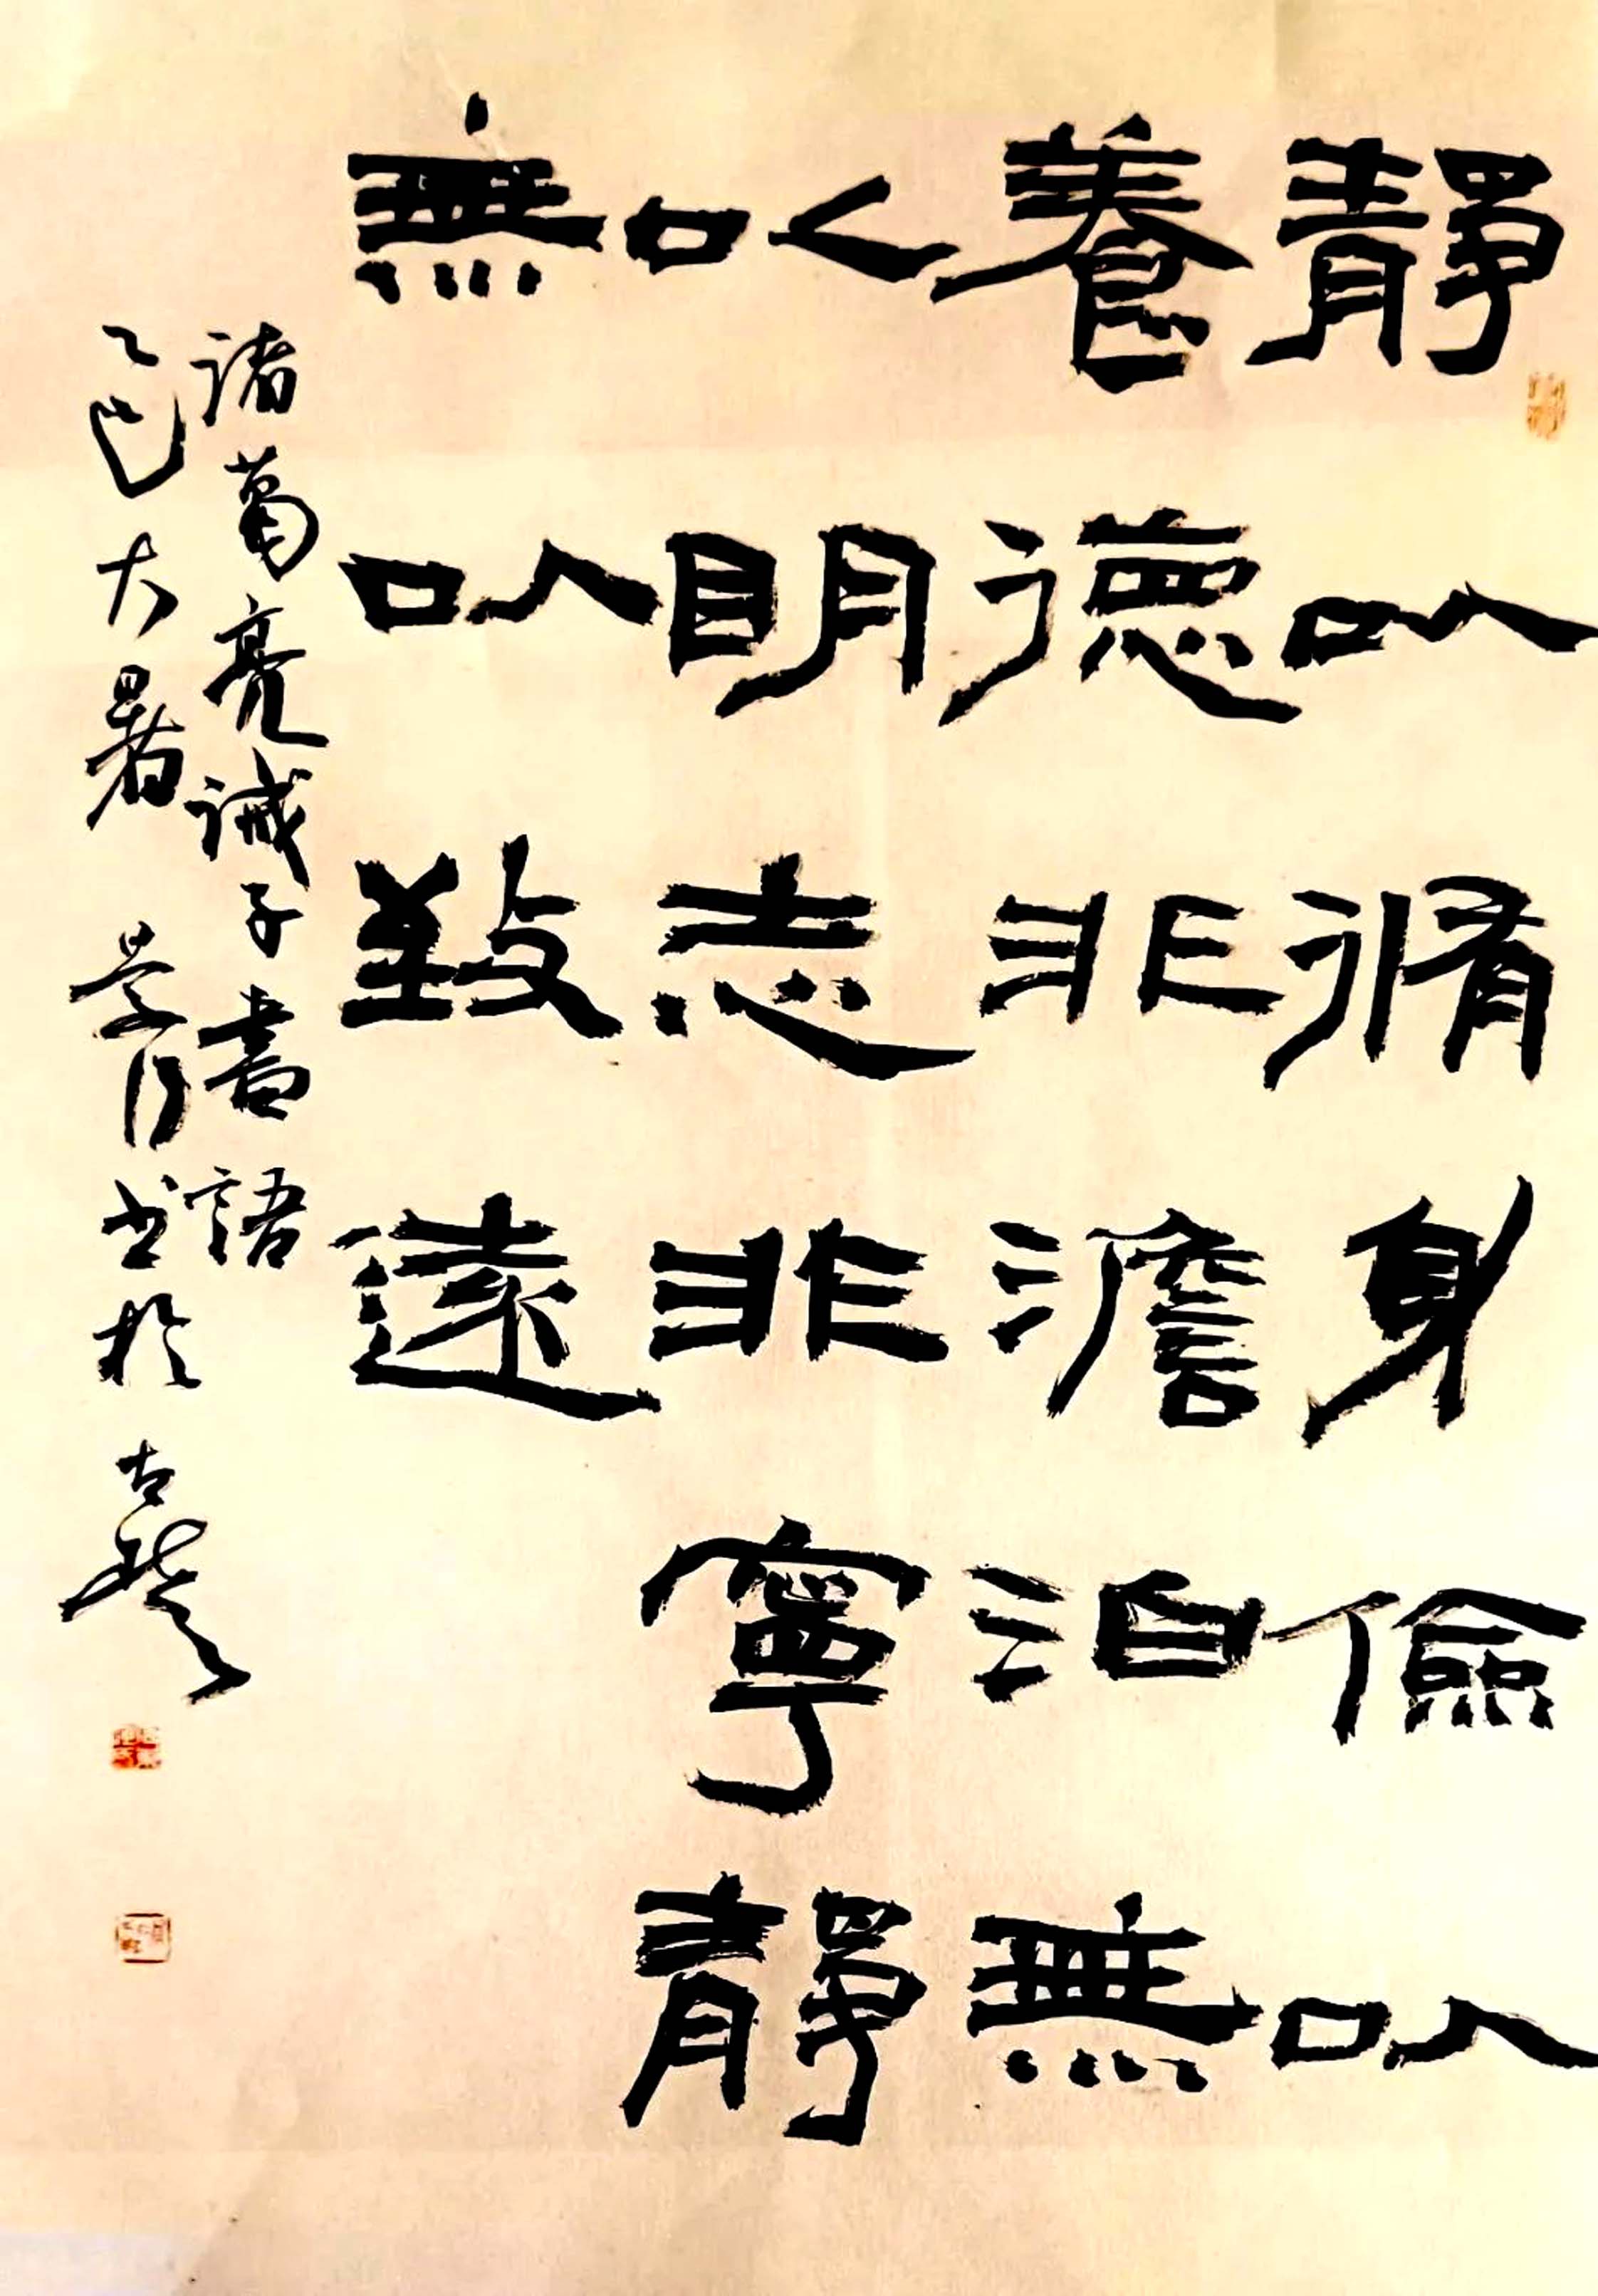 靜以脩身儉以
養德非澹泊無
以明志非寧靜
無以致遠
諸葛亮誡子書語
乙巳大暑 書於古